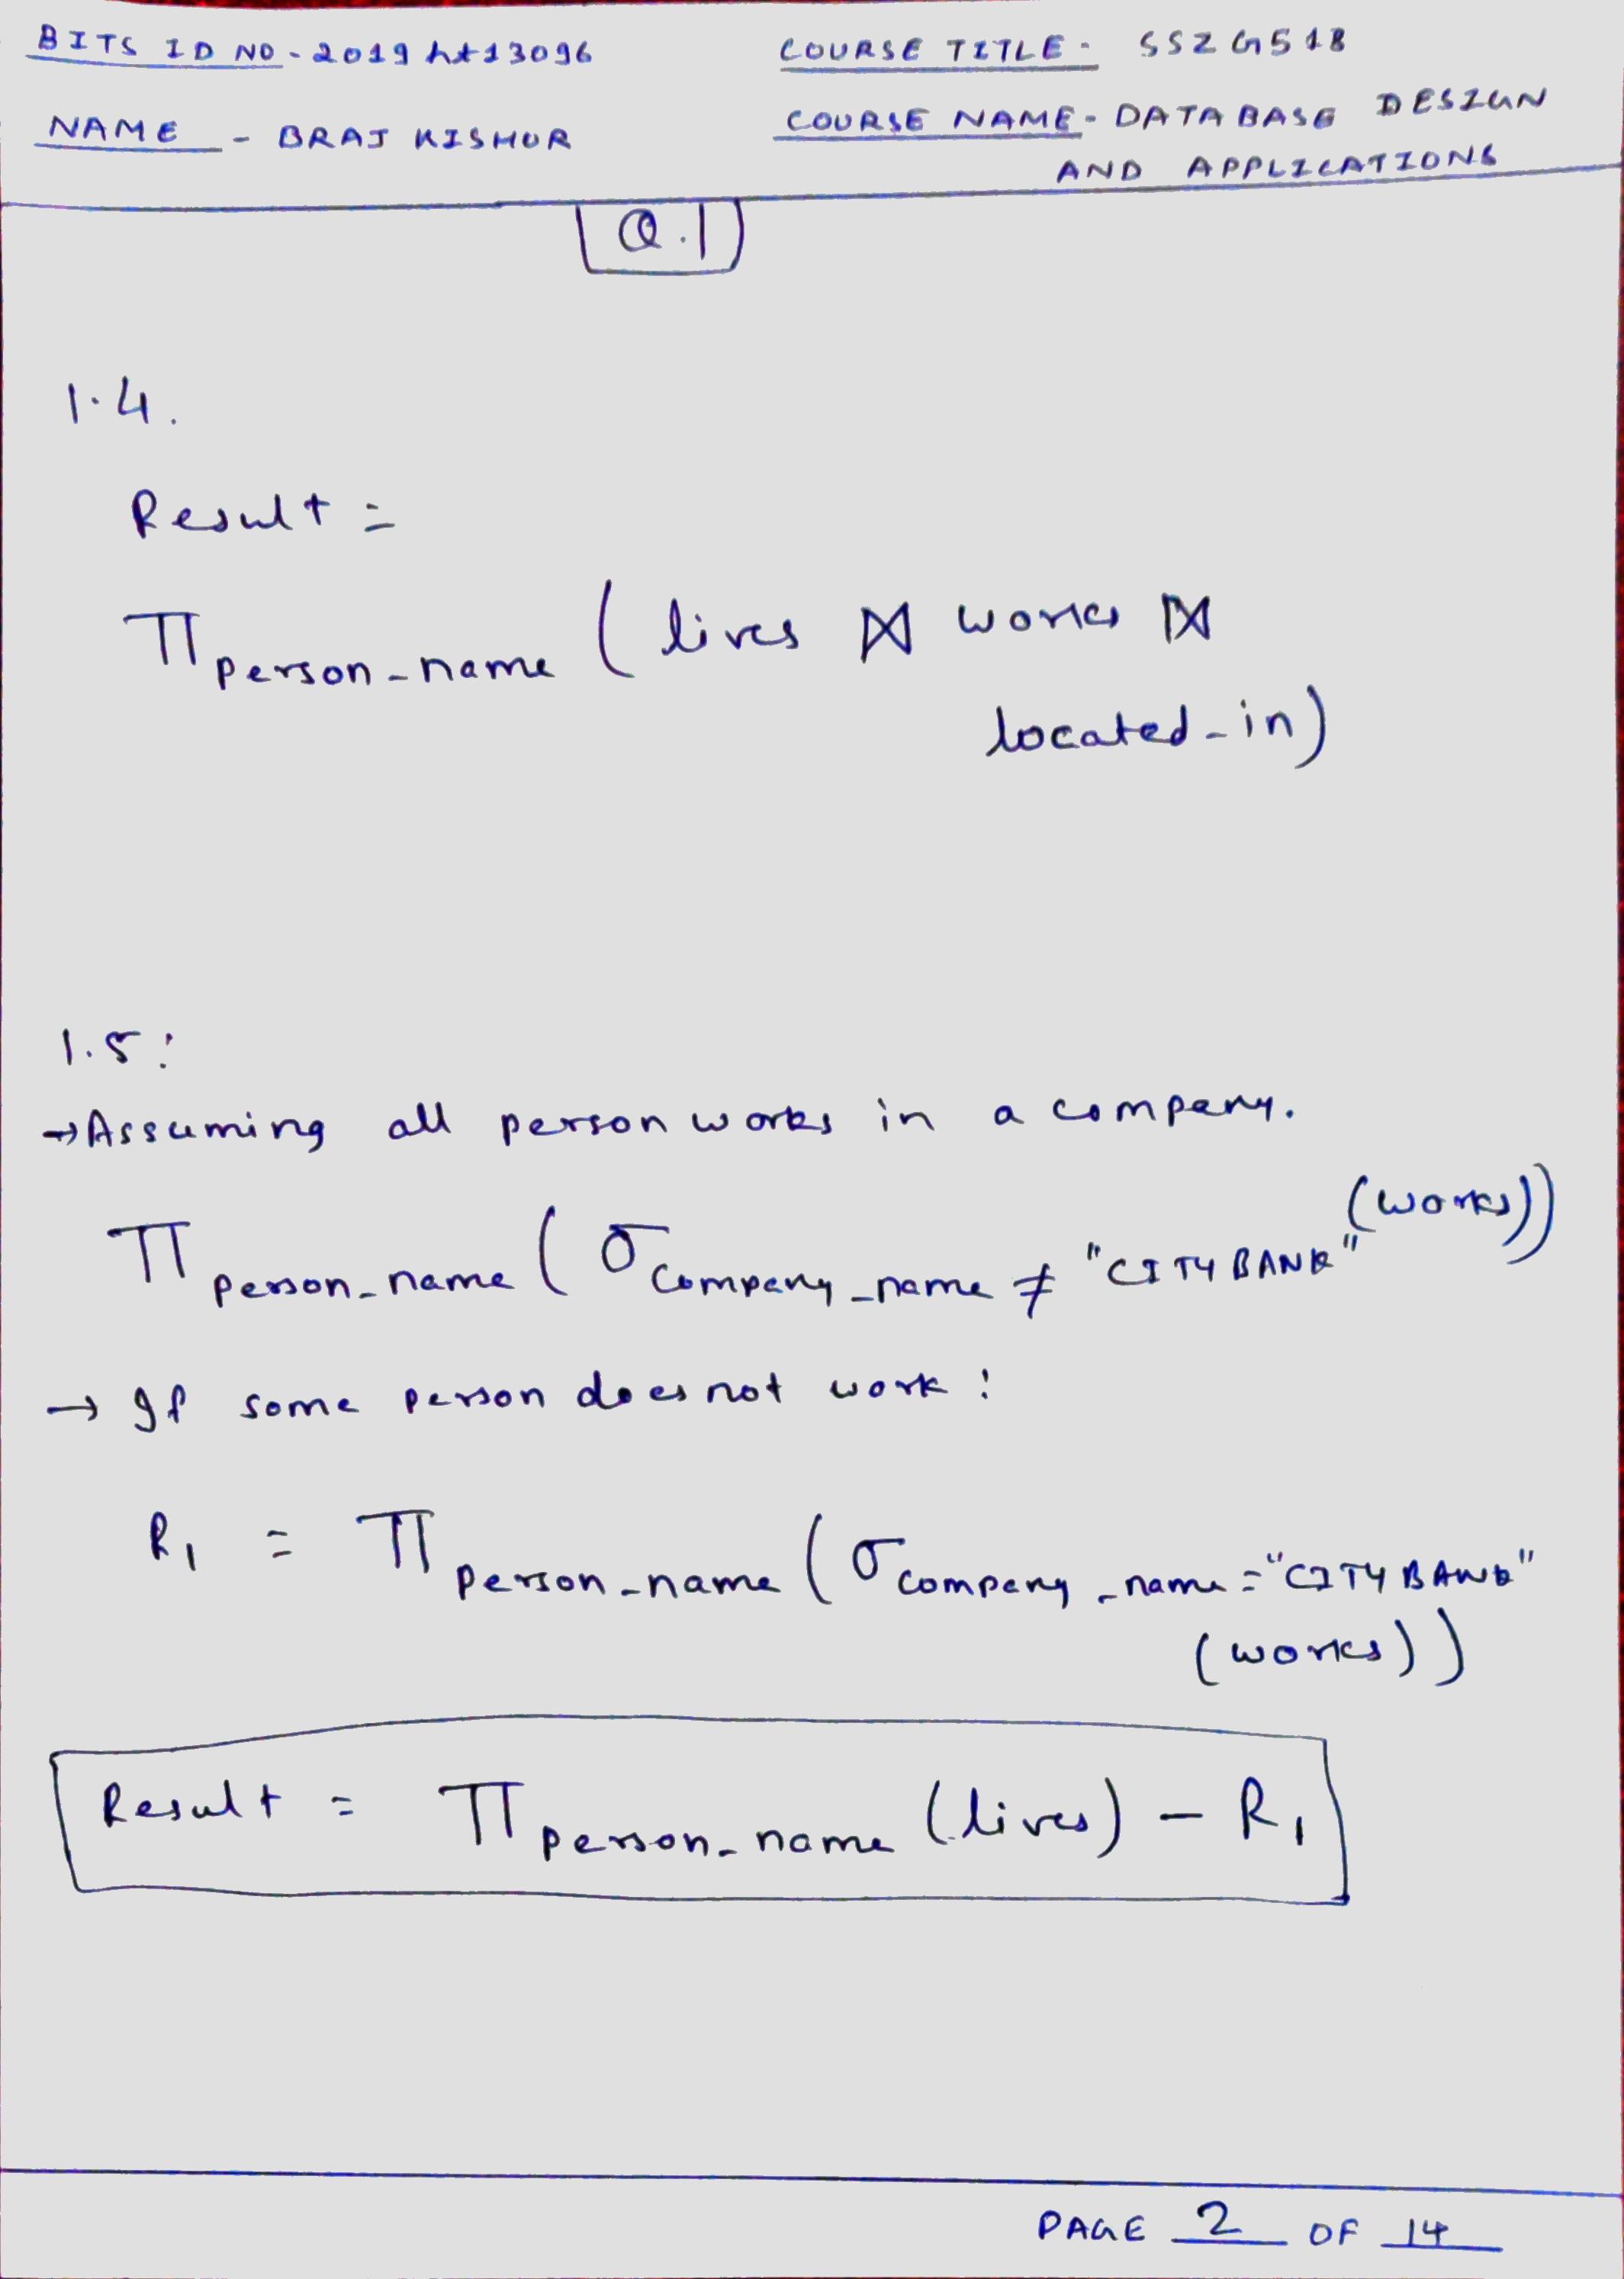 BITS ID NO - 2019ht13096
COURSE TITLE - SSZG518
NAME - BRAJ KISHOR
COURSE NAME - DATABASE DESIGN
AND APPLICATIONS
Q.1
1.4.
Result =
Π person_name (lives ⋈ works ⋈
located_in)
1.5:
→ Assuming all person works in a company.
Π person_name (σ company_name ≠ "CITY BANK" (works))
→ If some person does not work:
R1 = Π person_name (σ company_name = "CITY BANK"
(works))
Result = Π person_name (lives) − R1
PAGE 2 OF 14